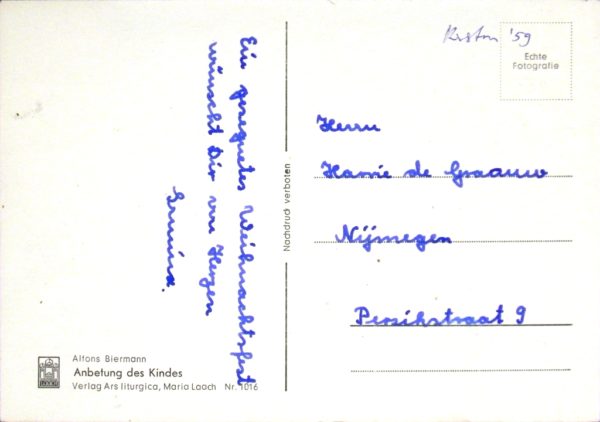 Ein gesegnetes Weihnachtsfest
wünscht Dir von Herzen
'59
Echte
Fotografie
Herrn
Harrie de Graauw
Nijmegen
Perzikstraat 9
Nachdruck verboten
Alfons Biermann
Anbetung des Kindes
Verlag Ars liturgica, Maria Laach Nr. 1016